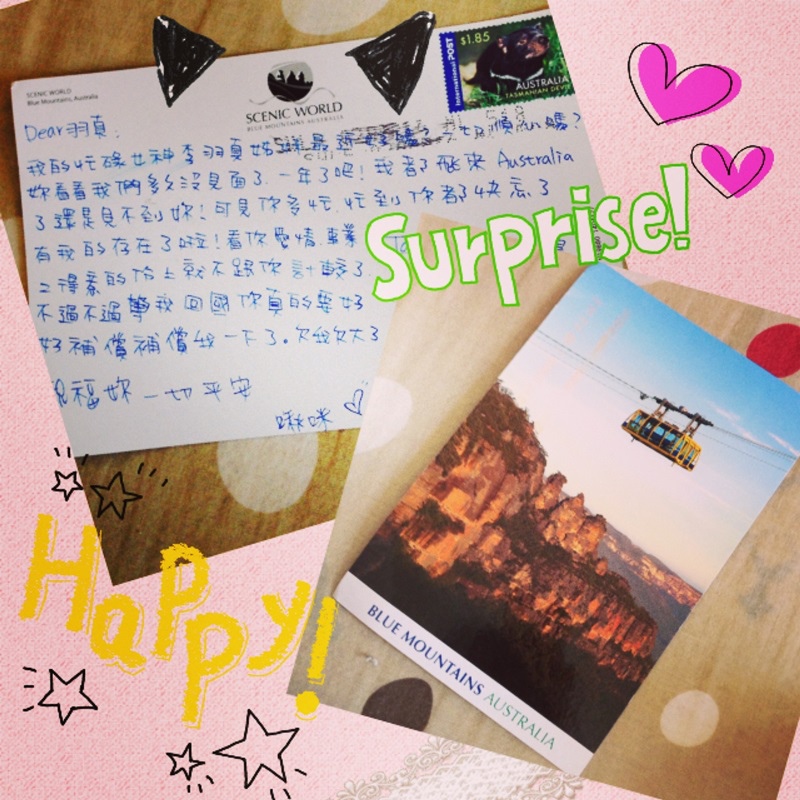 SCENIC WORLD
Blue Mountains, Australia
SCENIC WORLD
BLUE MOUNTAINS AUSTRALIA
International POST
$1.85
AUSTRALIA
TASMANIAN DEVIL
Dear羽真:
我的忙碌女神李羽真姑 最近好嗎? 一切順心嗎?
妳看看我們多久沒見面了.一年了吧!我都飛來 Australia
了還是見不到妳!可見你多忙.忙到你都快忘了
有我的存在了啦!看你愛情.事業
得意的份上就不跟你計較了.
不過不過等我回國你真的要好
好補償補償我一下了。欠我欠大了
祝福妳 一切平安
啾咪
Surprise!
Happy!
BLUE MOUNTAINS AUSTRALIA